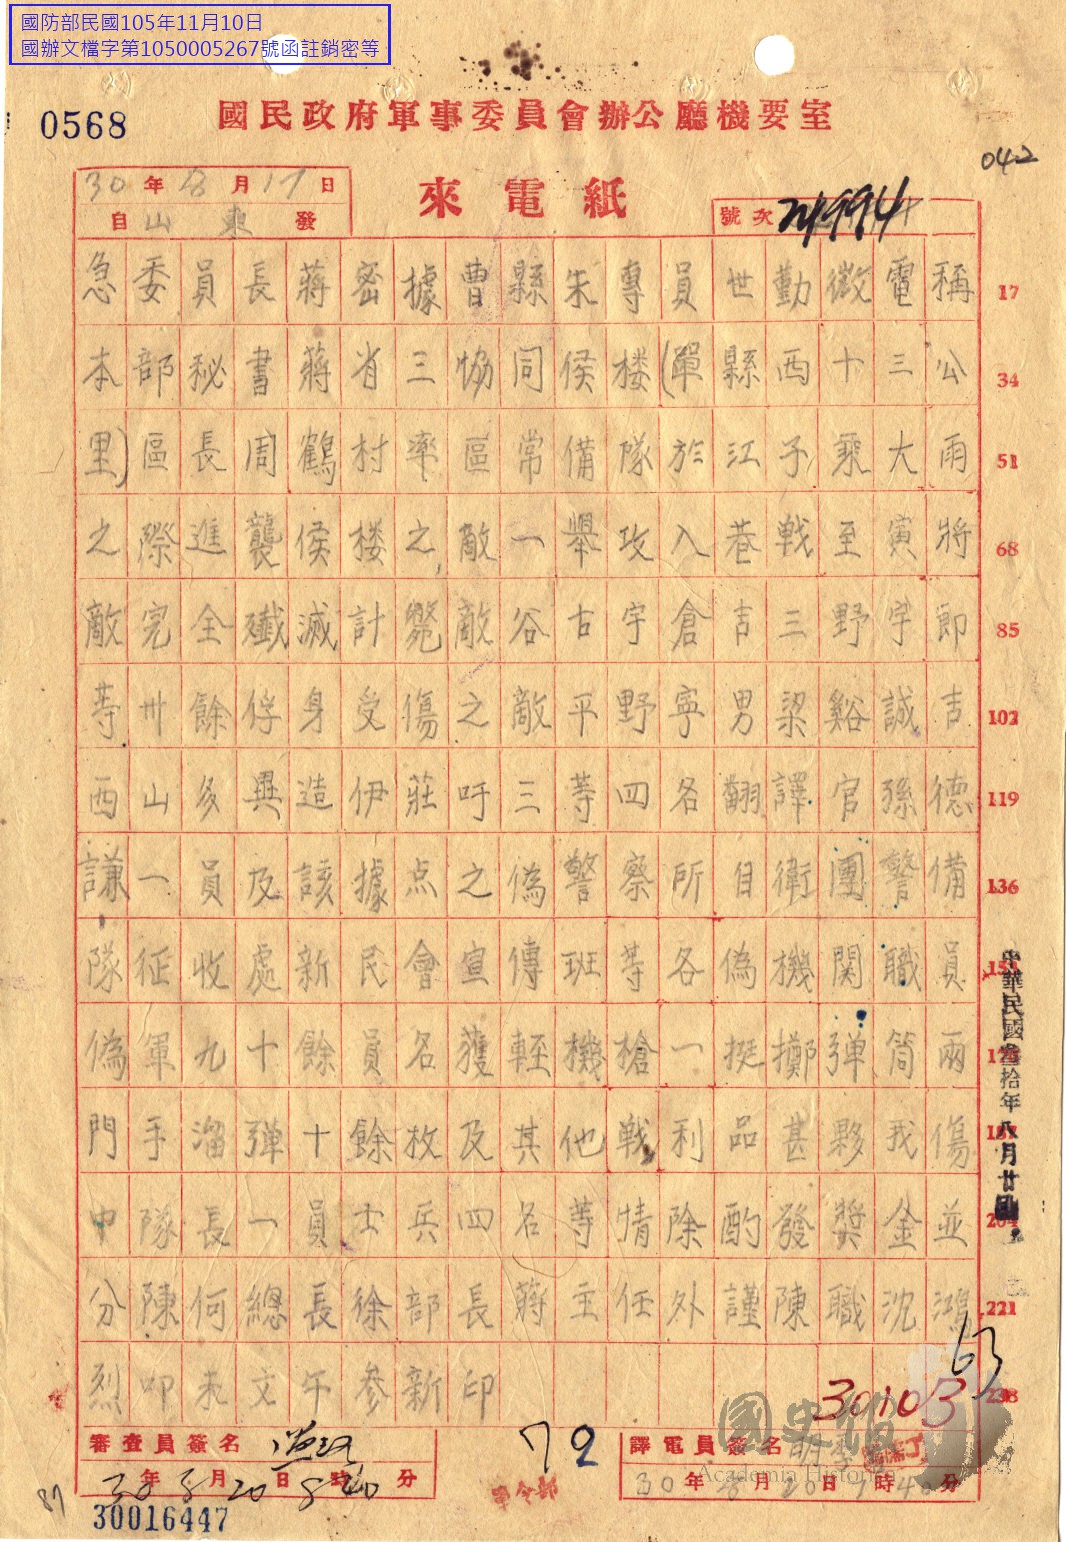 國防部民國105年11月10日
國辦文檔字第1050005267號函註銷密等
0568
國民政府軍事委員會辦公廳機要室
042
30年8月17日
來電紙
自山東發
號次
急委員長蔣密據曹縣朱專員世勤微電稱 17
本部秘書蔣省三協同侯楼(單縣西十三公 34
里)區長周鶴村率區常備隊於江子乘大雨 51
之際進襲侯楼之敵一舉攻入巷戰至寅將 68
敵完全殲滅計斃敵谷古宇倉吉三野宇郎 85
等卅餘俘身受傷之敵平野寧男梁谿誠吉 102
西山多興造伊莊吁三等四名翻譯官孫德 119
謙一員及該據点之偽警察所自衛團警備 136
隊征收處新民會宣傳班等各偽機関職員 153
偽軍九十餘員名獲輕機槍一挺擲弹筒兩
門手溜弹十餘枚及其他戰利品甚夥我傷
中隊長一員士兵四名等情除酌發獎金並 204
分陳何總長徐部長蔣主任外謹陳職沈鴻 221
烈叩未文午參新印 238
中華民國叁拾年八月廿日
63
30103
審查員簽名
30年8月20日8時40分
72
軍令部
譯電員簽名
30年8月20日7時40分
國史館
Academia Historica
87
30016447